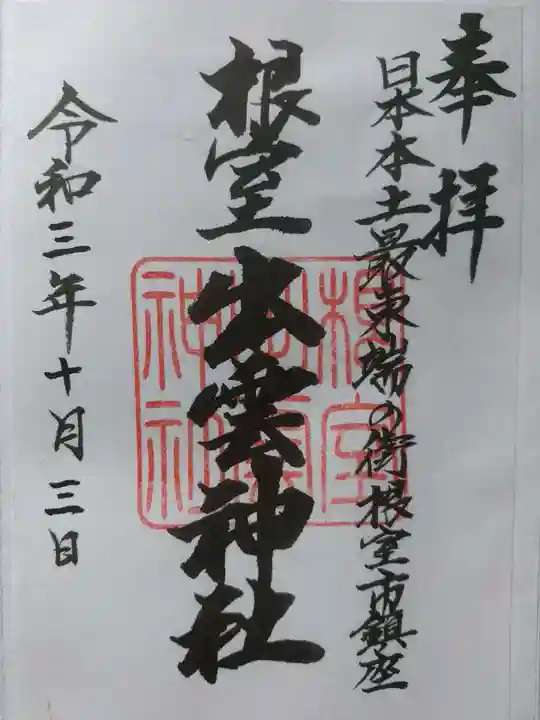 奉拝
日本本土最東端の街根室市鎮座
根室出雲神社
根室出雲神社
令和三年十月三日